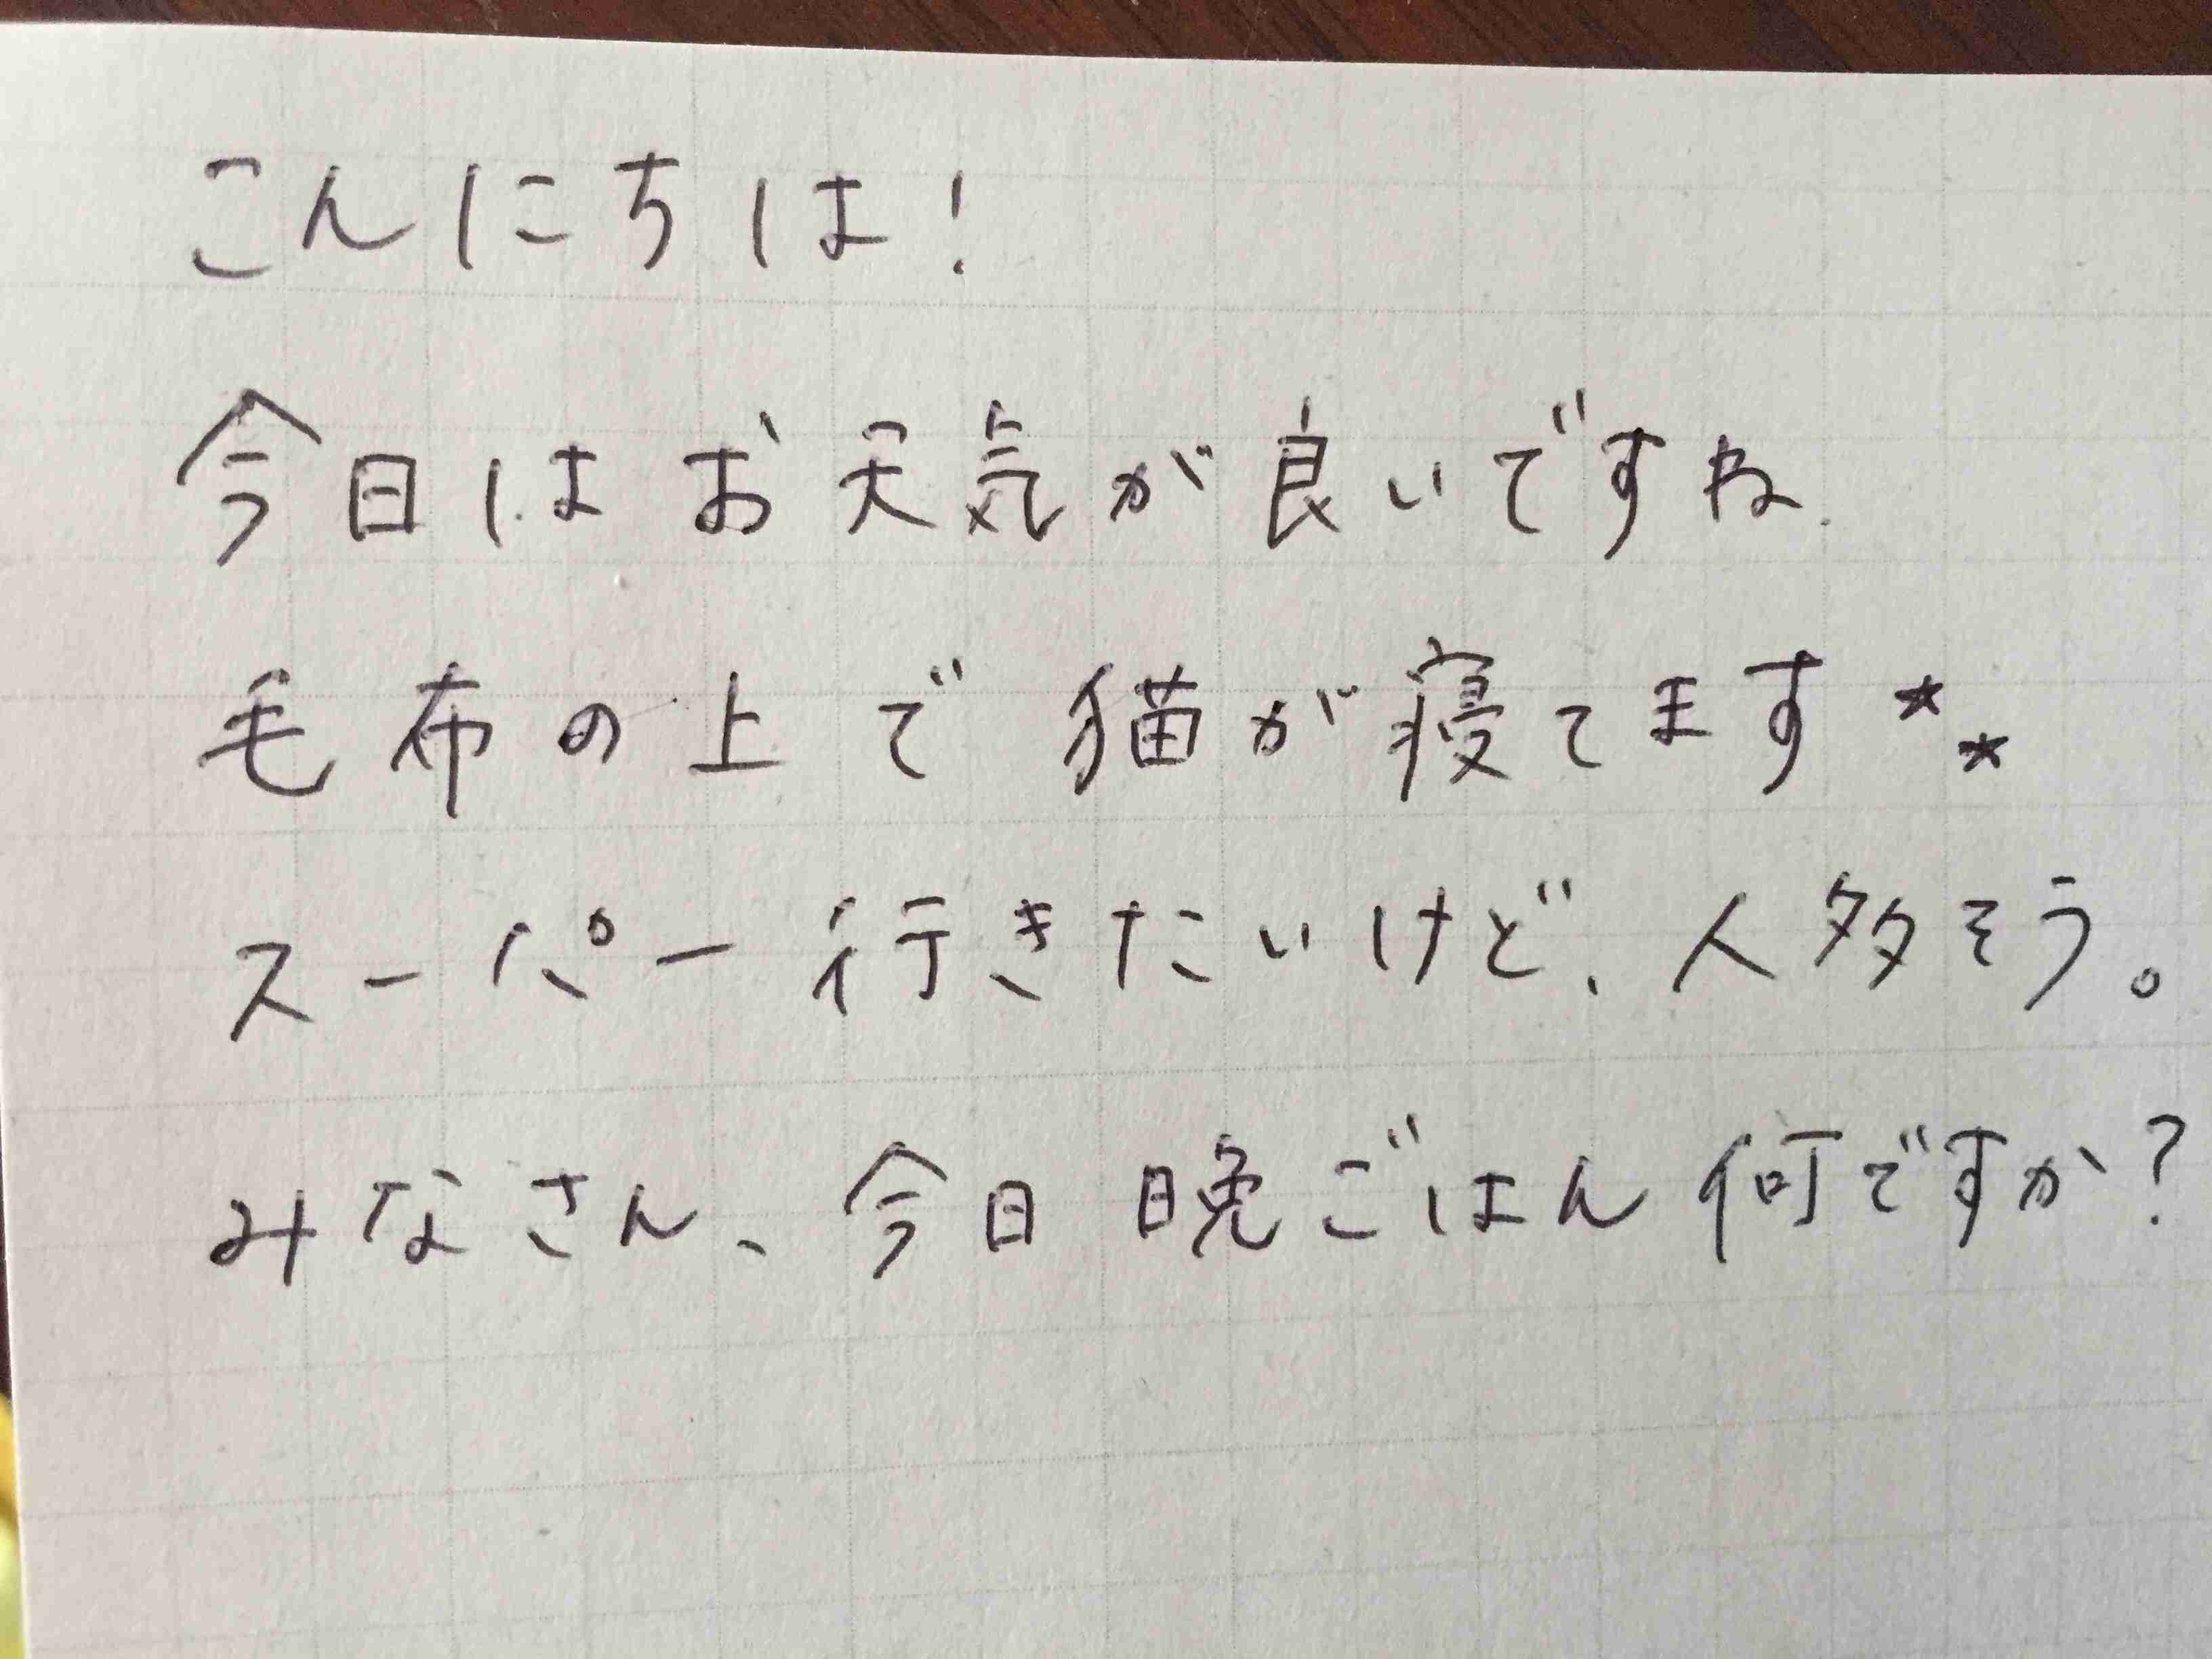 こんにちは!
今日はお天気が良いですね.
毛布の上で猫が寝てます**
スーパー行きたいけど、人多そう。
みなさん、今日晩ごはん何ですか?